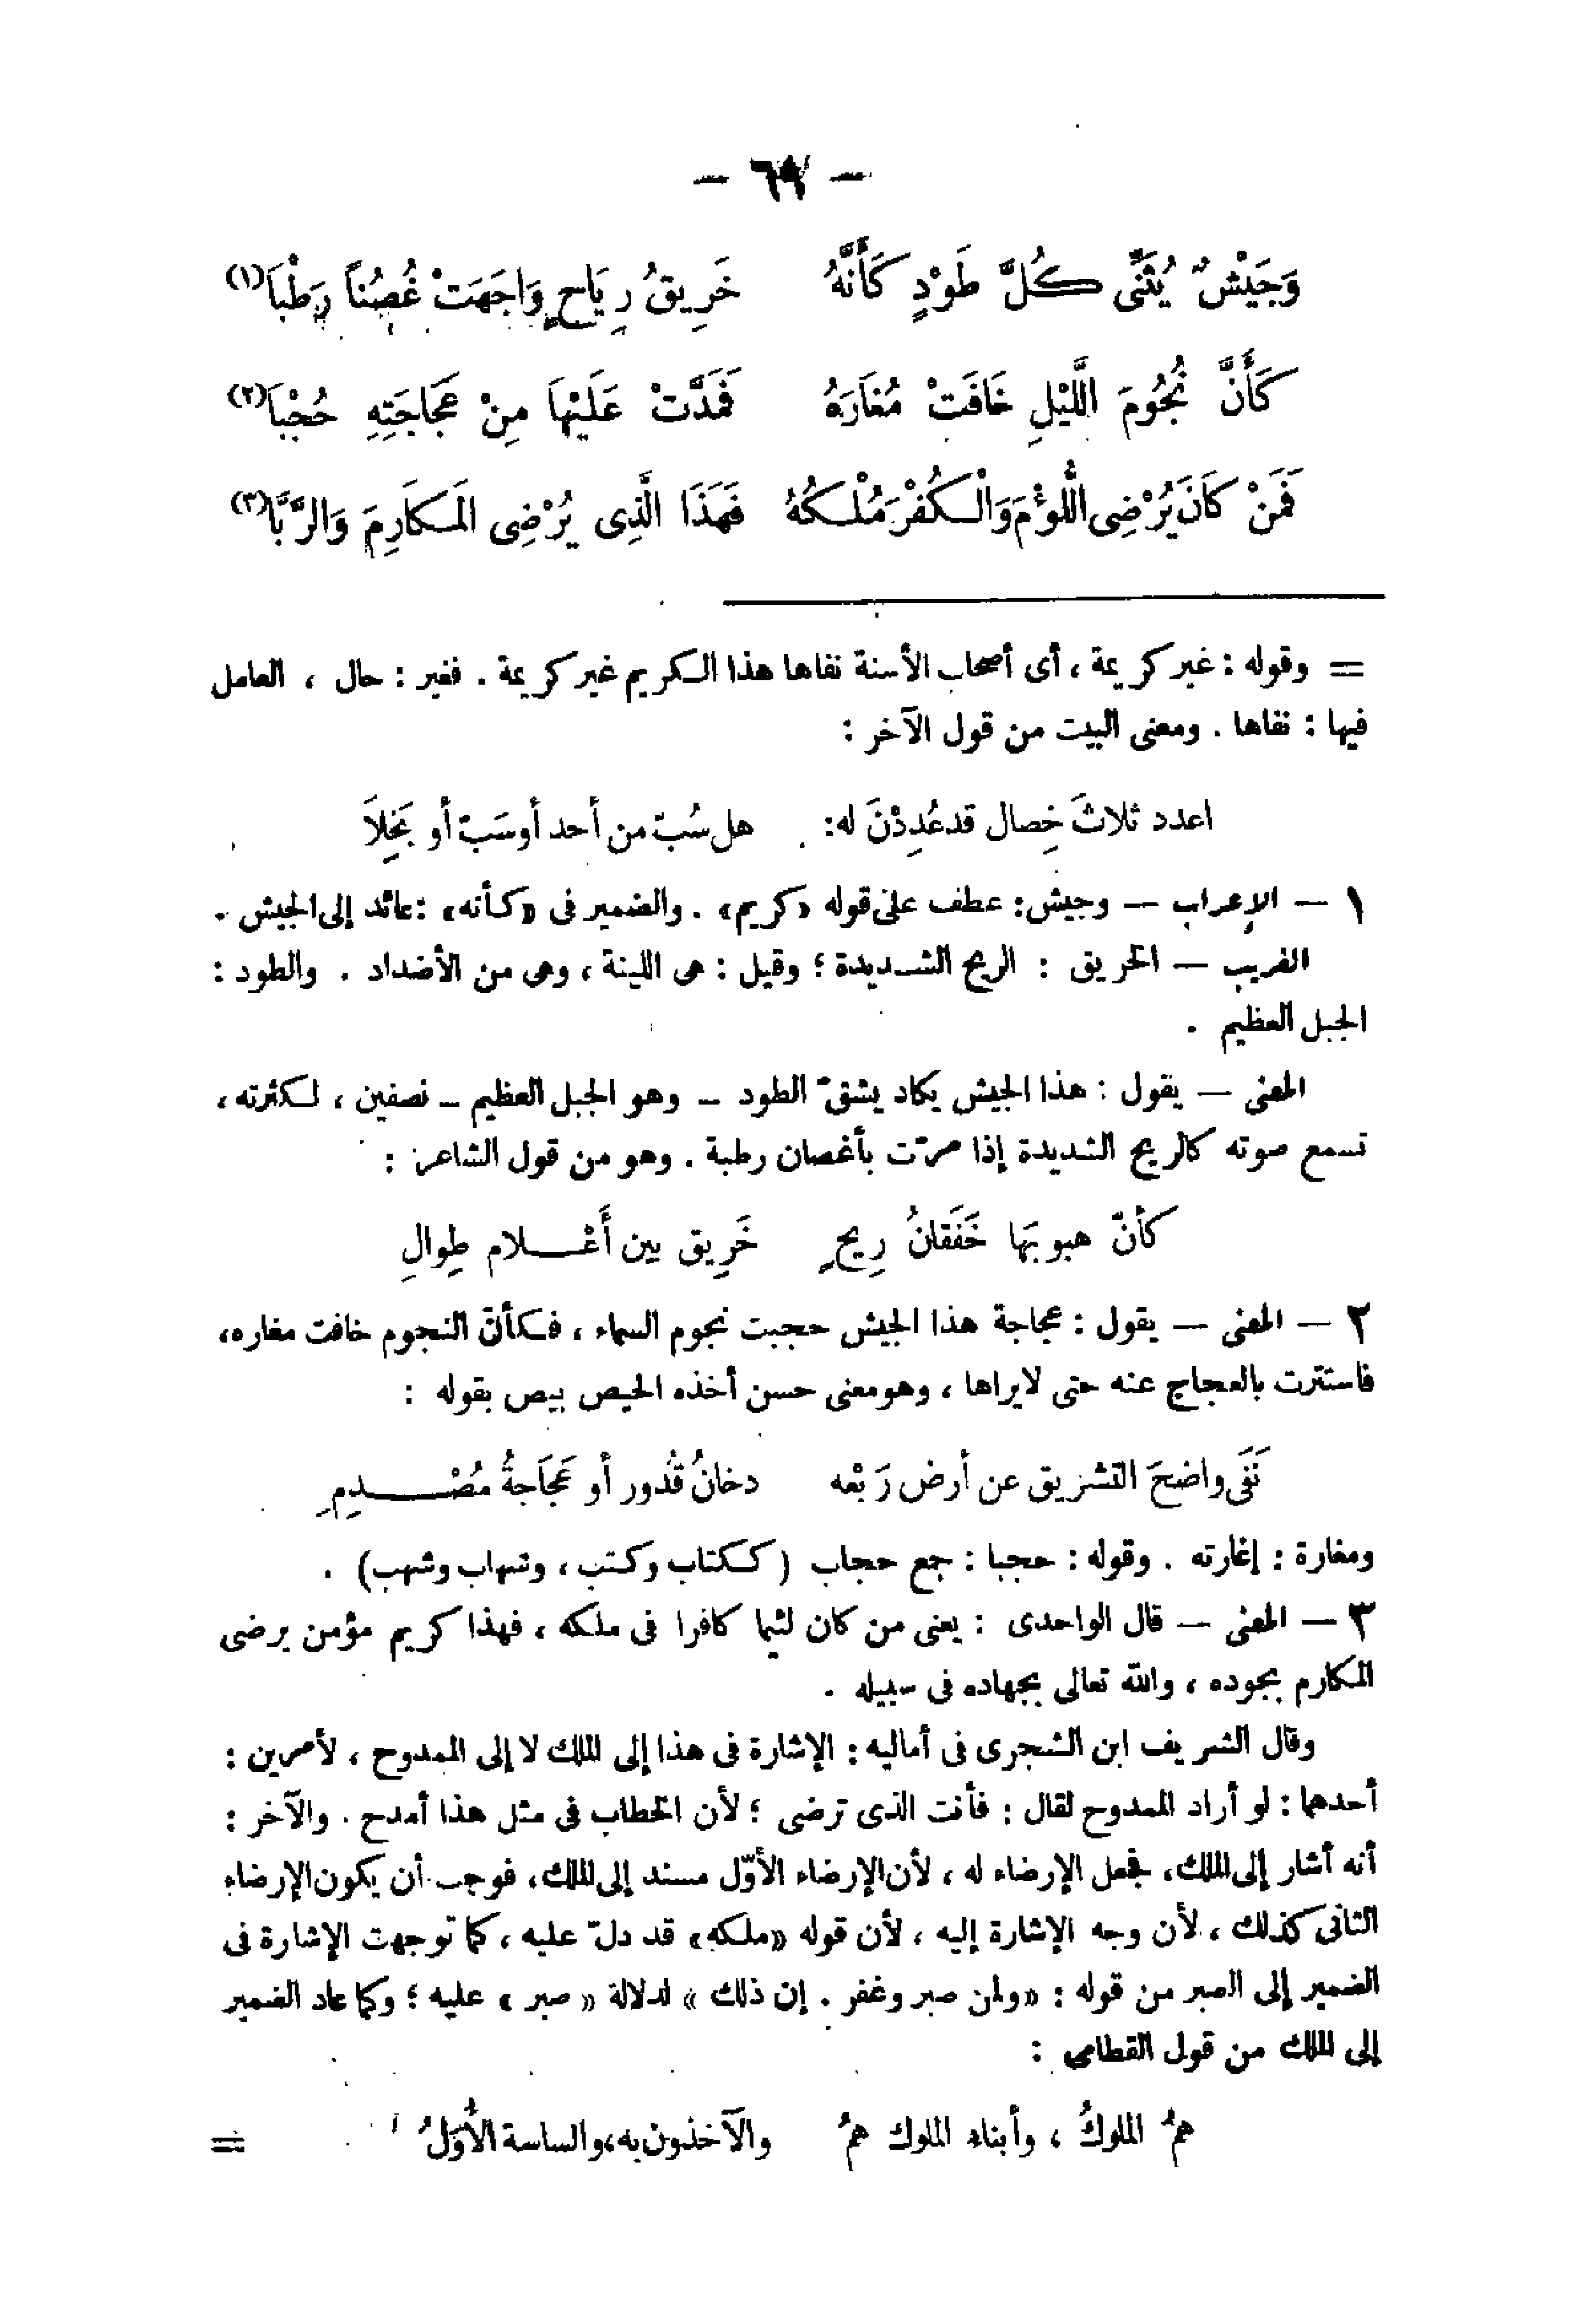 وَجَيْشٌ يُثَنِّى كُلَّ طَوْدٍ كَأَنَّهُ خَرِيقُ رِيَاحٍ وَاجَهَتْ غُصُناً رَطْبَا(١)
كَأَنَّ نُجُومَ اللَّيْلِ خَافَتْ مُغَارَهُ فَمَدَّتْ عَلَيْهاَ مِنْ عَجَاجَتِهِ حُجْبَا(٢)
فَمَنْ كَانَ يُرْضِى اللُّؤْمَ وَالْكُفْرَ مُلْكُهُ فَهَذَا الَّذِى يُرْضِى المَكَارِمَ وَالرَّبَّا(٣)
= وقوله : غير كريمة ، أى أصحاب الأسنة نفاها هذا الكريم غير كريمة . فغير : حال ، العامل
فيها : نفاها . ومعنى البيت من قول الآخر :
اعدد ثلاثَ خِصال قد عُدِدْنَ له: هل سُبّ من أحد أو سَبّ أو بَخِلاَ
١ — الإعراب — وجيش: عطف على قوله «كريم» . والضمير فى «كأنه» : عائد إلى الجيش .
الغريب — الخريق : الريح الشديدة ؛ وقيل : هى اللينة ، وهى من الأضداد . والطود :
الجبل العظيم .
المعنى — يقول : هذا الجيش يكاد يشقّ الطود – وهو الجبل العظيم – نصفين ، لكثرته ،
تسمع صوته كالريح الشديدة إذا مرّت بأغصان رطبة . وهو من قول الشاعر :
كأنّ هبوبَها خَفَقانُ رِيحٍ خَرِيق بين أَعْلام طِوالِ
٢ — المعنى — يقول : عجاجة هذا الجيش حجبت نجوم السماء ، فكأنّ النجوم خافت مغاره،
فاستترت بالعجاج عنه حتى لايراها ، وهو معنى حسن أخذه الحيص بيص بقوله :
نَفَى واضحَ التشريق عن أرض رَبْعه دخانُ قُدور أو عَجَاجةُ مُصْدِمِ
ومغارة : إغارته . وقوله : حجبا : جمع حجاب (ككتاب وكتب ، وشهاب وشهب) .
٣ — المعنى — قال الواحدى : يعنى من كان لئيما كافرا فى ملكه ، فهذا كريم مؤمن يرضى
المكارم بجوده ، والله تعالى بجهاده فى سبيله .
وقال الشريف ابن الشجرى فى أماليه : الإشارة فى هذا إلى الملك لا إلى الممدوح ، لأمرين :
أحدهما : لو أراد الممدوح لقال : فأنت الذى ترضى ؛ لأن الخطاب فى مثل هذا أمدح . والآخر :
أنه أشار إلى الملك، فجعل الإرضاء له ، لأن الإرضاء الأوّل مسند إلى الملك، فوجب أن يكون الإرضاء
الثانى كذلك ، لأن وجه الإشارة إليه ، لأن قوله «ملكه» قد دلّ عليه ، كما توجهت الإشارة فى
الضمير إلى الصبر من قوله : «ولمن صبر وغفر . إن ذلك » لدلالة « صبر » عليه ؛ وكما عاد الضمير
إلى الملك من قول القطامى :
همُ الملوكُ ، وأبناء الملوك همُ والآخذون به، والساسة الأُوَلُ =